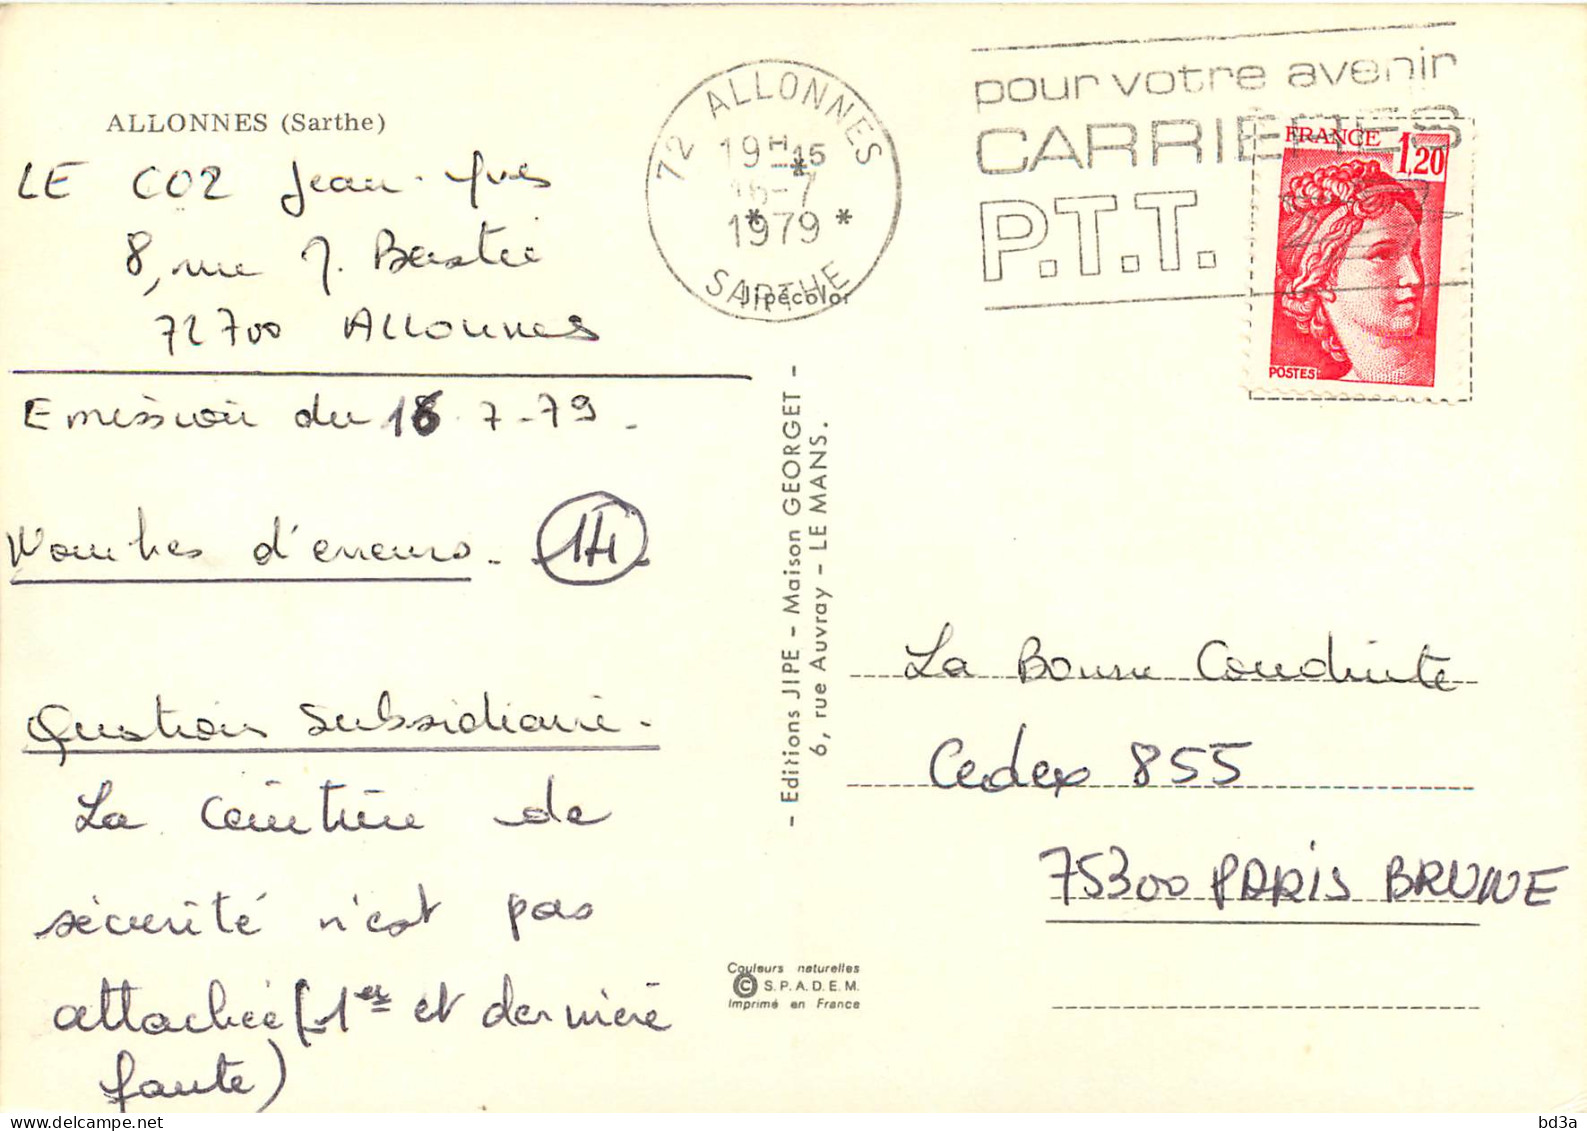 ALLONNES (Sarthe)
LE COZ Jean-Yves
8, rue J. Bastié
72700 ALLONNES
Emission du 16.7-79.
Nombres d'erreurs. 14.
Question subsidiaire.
La ceinture de
sécurité n'est pas
attachée (1er et dernière
faute)
72 ALLONNES
19H15
16-7
1979
SARTHE
Jipécolor
pour votre avenir
CARRIERES
P.T.T.
FRANCE
1,20
POSTES
- Editions JIPE - Maison GEORGET -
6, rue Auvray - LE MANS.
La Bonne Conduite
Cedex 855
75300 PARIS BRUNE
Couleurs naturelles
© S.P.A.D.E.M.
Imprimé en France
bd3a